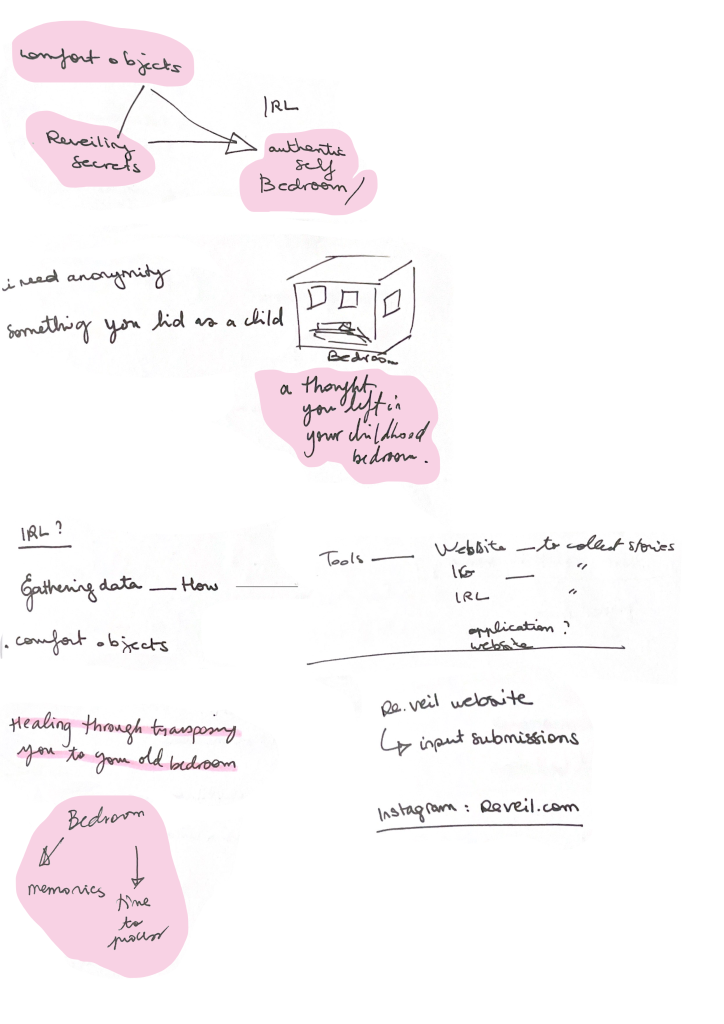 comfort objects
IRL
Reveiling
secrets
authentic
self
Bedroom/
i need anonymity
something you hid as a child
Bedroom
a thought
you left in
your childhood
bedroom.
IRL?
Gathering data — How
. comfort objects
Tools — Website — to collect stories
IG — "
IRL "
application?
website
Re.veil website
↳ input submissions
Instagram : Reveil.com
Healing through transposing
you to your old bedroom
Bedroom
memories
time
to
process